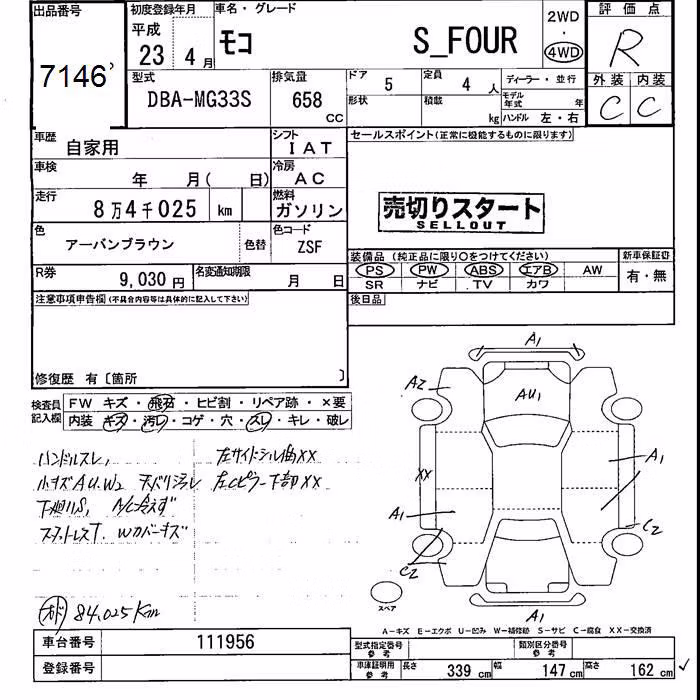 出品番号
7146
初度登録年月
平成
23 4月
車名・グレード
モコ S_FOUR
2WD
・
4WD
評価点
R
型式
DBA-MG33S
排気量
658
CC
ドア 5
定員 4人
形状
積載 kg
ディーラー・並行
モデル年式 年
ハンドル 左・右
外装 内装
C C
車歴 自家用
シフト IAT
セールスポイント(正常に機能するものに限ります)
車検 年 月( 日)
冷房 AC
走行 8万4千025 km
燃料 ガソリン
売切りスタート
SELLOUT
色 アーバンブラウン 色替
色コード ZSF
装備品(純正品に限り○をつけてください)
新車保証書
PS PW ABS エアB AW
SR ナビ TV カワ
有・無
R券 9,030円
名変通知期限 月 日
後日品
注意事項申告欄(不具合内容等は具体的に記入して下さい)
修復歴 有〔箇所 〕
検査員記入欄
FW キズ・飛石・ヒビ割・リペア跡・×要
内装 キズ・汚レ・コゲ・穴・スレ・キレ・破レ
ハンドルスレ, 左サイドシル曲XX
小キズAU.W2 左Cピラー下部XX
A/C冷えず
84,025Km
A1
A2
AU1
XX
A1
A1
C2
C2
A1
スペア
A-キズ E-エクボ U-凹み W-補修跡 S-サビ C-腐食 XX-交換済
車台番号 111956
登録番号
型式指定番号 参考
類別区分番号 参考
車庫証明用 参考 長さ 339cm 幅 147cm 高さ 162cm